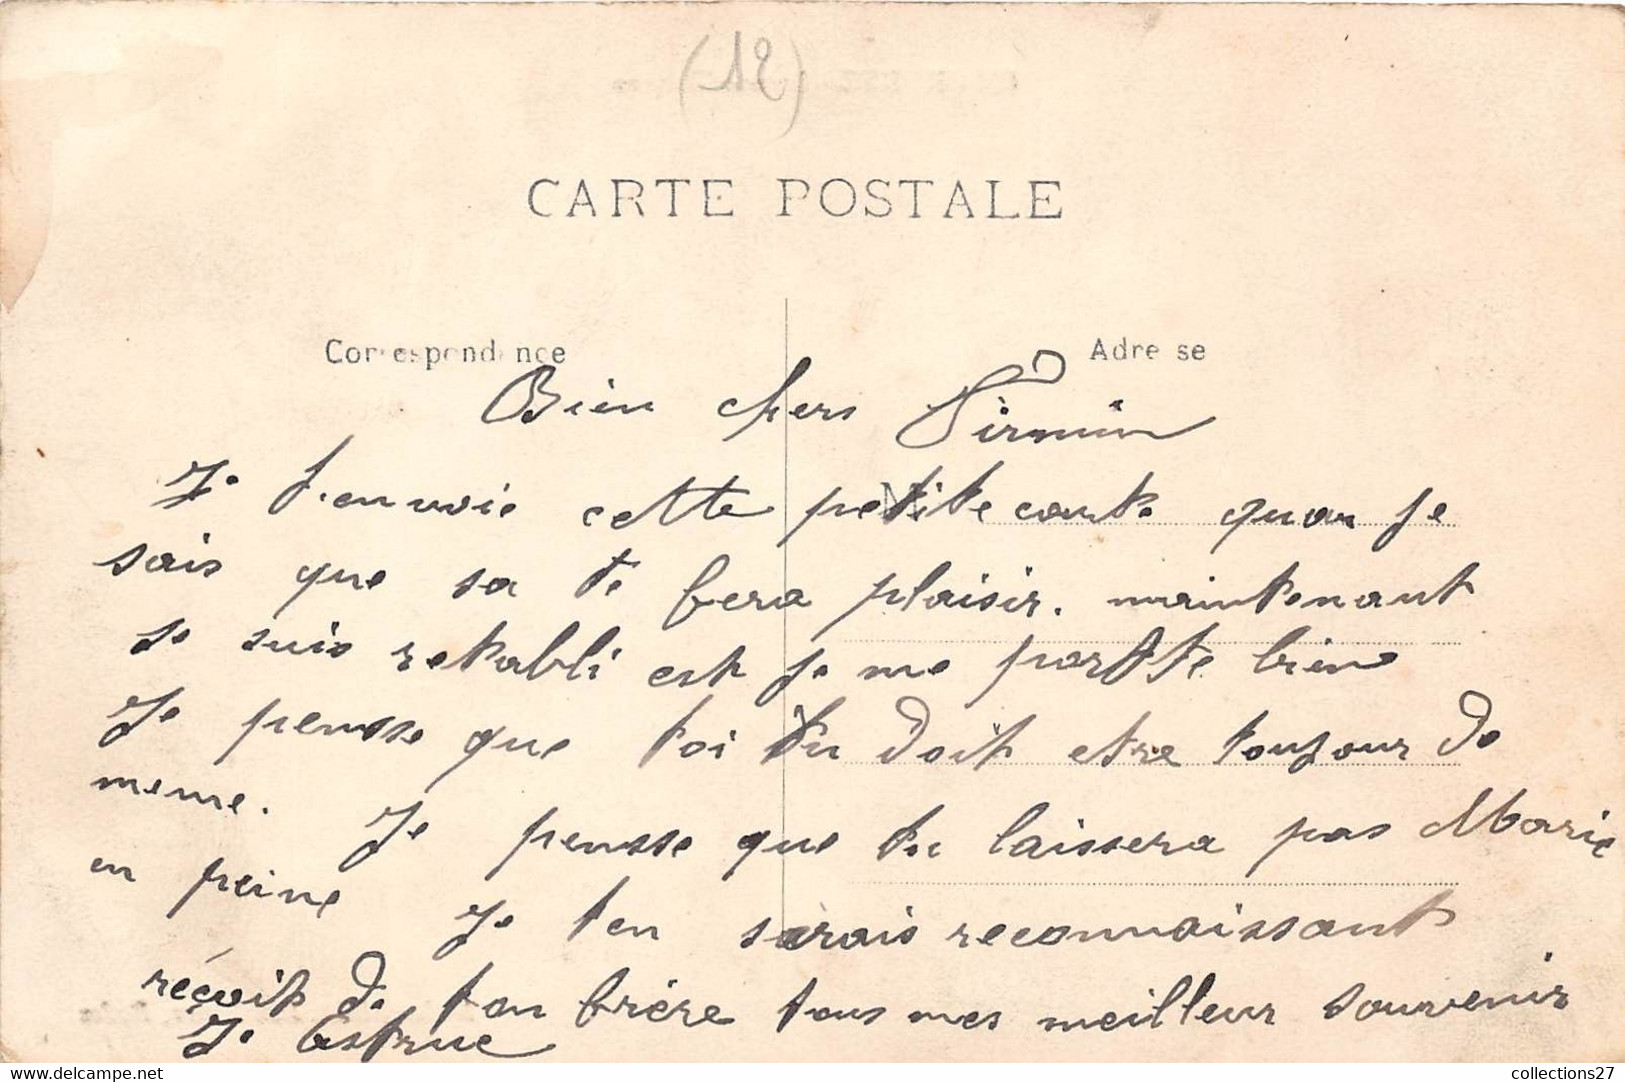 (12)
CARTE POSTALE
Correspondance
Adresse
Bien chers Firmin
Je t.envoie cette petite carte quar je
sais que sa te fera plaisir. maintenant
je suis retabli est je me portte bien
Je pensse que toi tu doit etre toujour de
meme. Je pensse que tu laissera pas Marie
en peine Je ten serais reconnaissant
réçoit de ton frère tous mes meilleur souvenir
J. Astruc
delcampe.net
collections27